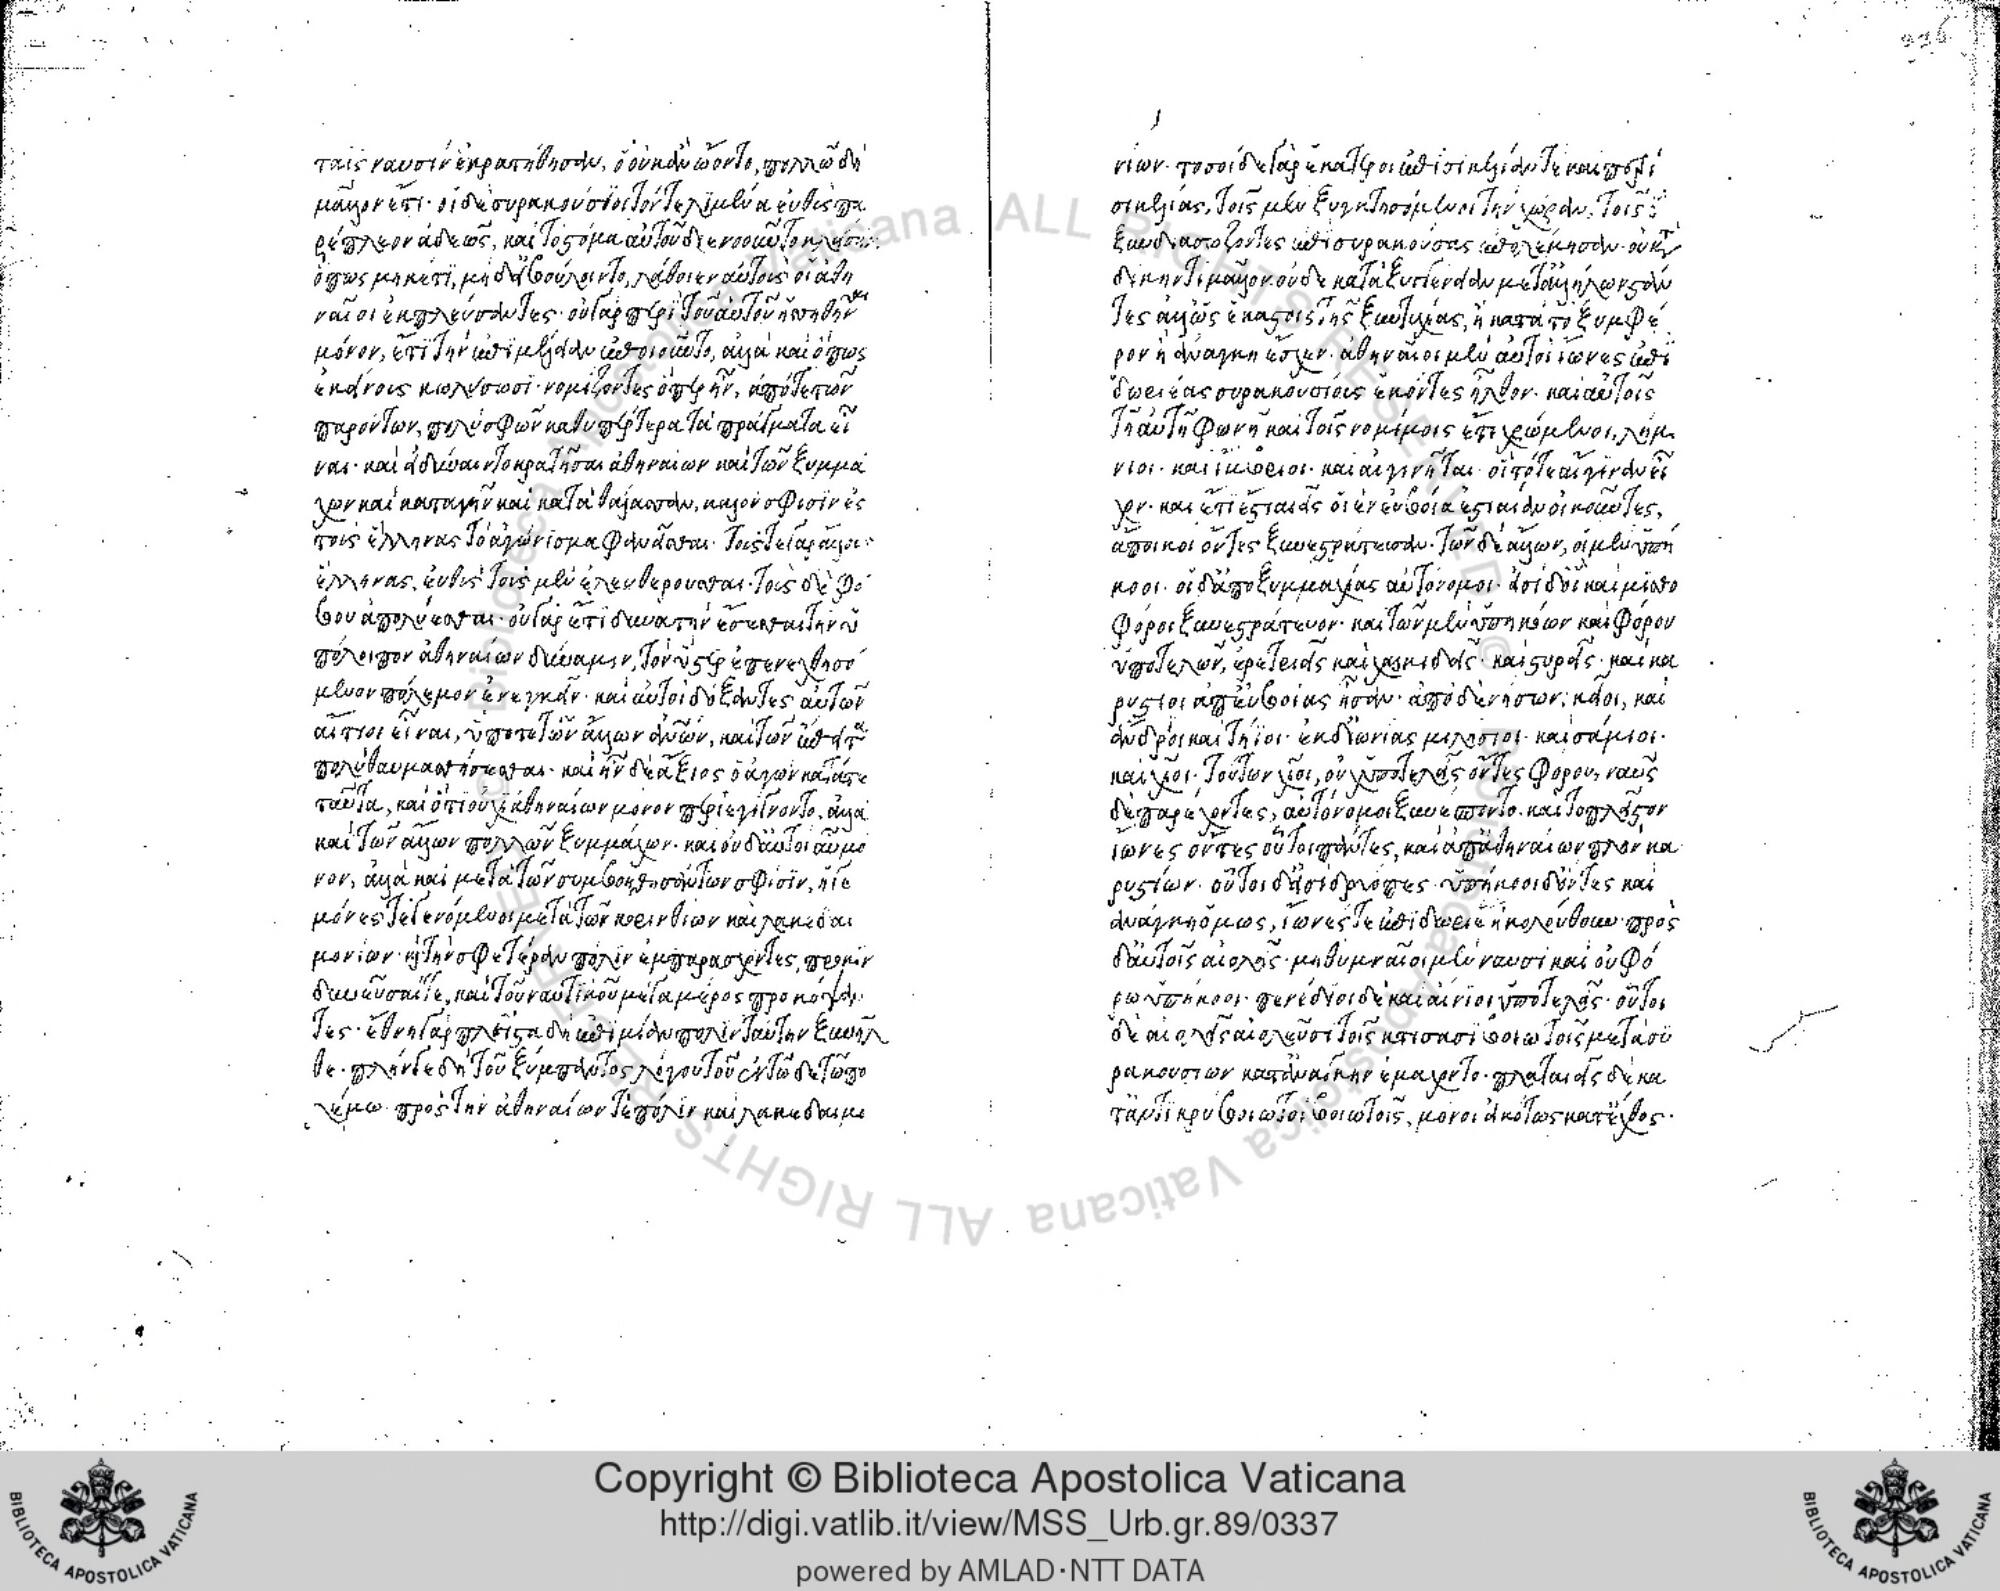 ταῖς ναυσὶν ἐκρατήθησαν, ὃ οὐκ ἂν ὤοντο, πολλῶ δὴ
μᾶλλον ἔτι· οἱ δὲ συρακούσιοι τόν τε λιμένα εὐθὺς πα
ρέπλεον ἀδεῶς, καὶ τὸ στόμα αὐτοῦ διενοοῦντο κλήσειν,
ὅπως μηκέτι, μηδ' εἰ βούλοιντο, λάθοιεν αὐτοὺς οἱ ἀθη
ναῖοι ἐκπλεύσαντες· οὐ γὰρ περὶ τοῦ αὐτοῦ σωθῆναι
μόνον, ἔτι τὴν ἐπιμέλειαν ἐποιοῦντο, ἀλλὰ καὶ ὅπως
ἐκείνους κωλύσωσι· νομίζοντες ὅπερ ἦν, ἀπό τε τῶν
παρόντων, πολὺ σφῶν καθυπέρτερα τὰ πράγματα εἶ
ναι· καὶ εἰ δύναιντο κρατῆσαι ἀθηναίων καὶ τῶν ξυμμά
χων καὶ κατὰ γῆν καὶ κατὰ θάλασσαν, καλὸν σφίσιν ἐς
τοὺς ἕλληνας τὸ ἀγώνισμα φανεῖσθαι· τούς τε γὰρ ἄλλους
ἕλληνας, εὐθὺς τοὺς μὲν ἐλευθεροῦσθαι· τοὺς δὲ φό
βου ἀπολύεσθαι· οὐ γὰρ ἔτι δυνατὴν ἔσεσθαι τὴν ὑ
πόλοιπον ἀθηναίων δύναμιν, τὸν ὕστερον ἐπενεχθησό
μενον πόλεμον ἐνεγκεῖν· καὶ αὐτοὶ δόξαντες αὐτῶν
αἴτιοι εἶναι, ὑπό τε τῶν ἄλλων ἀνθρώπων, καὶ τῶν ἔπειτα
πολὺ θαυμασθήσεσθαι· καὶ ἦν δὲ ἄξιος ὁ ἀγὼν κατά τε
ταῦτα, καὶ ὅτι οὐχὶ ἀθηναίων μόνον περιεγίγνοντο, ἀλλὰ
καὶ τῶν ἄλλων πολλῶν ξυμμάχων· καὶ οὐδ' αὐτοὶ αὖ μό
νον, ἀλλὰ καὶ μετὰ τῶν συμβοηθησάντων σφίσιν, ἡγε
μόνες τε γενόμενοι μετὰ τῶν κορινθίων καὶ λακεδαι
μονίων· καὶ τὴν σφετέραν πόλιν ἐμπαρασχόντες, προκιν
δυνεῦσαί τε, καὶ τοῦ ναυτικοῦ μέγα μέρος προκόψαν
τες· ἔθνη γὰρ πλεῖστα δὴ ἐπὶ μίαν πόλιν ταύτην ξυνῆλ
θε· πλήν γε δὴ τοῦ ξύμπαντος λόγου τοῦ ἐν τῶδε τῶ πο
λέμω πρὸς τὴν ἀθηναίων τε πόλιν καὶ λακεδαιμο
νίων· τοσοίδε γὰρ ἑκάτεροι ἐπὶ σικελίαν τε καὶ περὶ
σικελίας, τοῖς μὲν ξυγκτησόμενοι τὴν χώραν, τοῖς δὲ
ξυνδιασώζοντες ἐπὶ συρακούσας ἐπολέμησαν· οὐ κατὰ
δίκην τι μᾶλλον οὐδὲ κατὰ ξυγγένειαν μετ' ἀλλήλων στάν
τες ἀλλ' ὡς ἑκάστοις τῆς ξυντυχίας, ἢ κατὰ τὸ ξυμφέ
ρον ἢ ἀνάγκη ἔσχεν· ἀθηναῖοι μὲν αὐτοὶ ἴωνες ἐπὶ
δωριέας συρακουσίους ἑκόντες ἦλθον· καὶ αὐτοῖς
τῆ αὐτῆ φωνῆ καὶ τοῖς νομίμοις ἔτι χρώμενοι, λήμ
νιοι· καὶ ἴμβριοι· καὶ αἰγινῆται· οἳ τότε αἴγιναν εἶ
χον· καὶ ἔτι ἑστιαιεῖς οἱ ἐν εὐβοία ἑστίαιαν οἰκοῦντες,
ἄποικοι ὄντες ξυνεστράτευσαν· τῶν δὲ ἄλλων, οἱ μὲν ὑπή
κοοι· οἱ δ' ἀπὸ ξυμμαχίας αὐτόνομοι· εἰσὶ δ' οἳ καὶ μισθο
φόροι ξυνεστράτευον· καὶ τῶν μὲν ὑπηκόων καὶ φόρου
ὑποτελῶν, ἐρετριεῖς καὶ χαλκιδεῖς· καὶ στυρεῖς· καὶ κα
ρύστιοι ἀπ' εὐβοίας ἦσαν· ἀπὸ δὲ νήσων, κεῖοι, καὶ
ἄνδριοι καὶ τήϊοι· ἐκ δ' ἰωνίας μιλήσιοι· καὶ σάμιοι·
καὶ χῖοι· τούτων χῖοι, οὐχ ὑποτελεῖς ὄντες φόρου, ναῦς
δὲ παρέχοντες, αὐτόνομοι ξυνέσποντο· καὶ τὸ πλεῖστον
ἴωνες ὄντες οὗτοι πάντες, καὶ ἀπ' ἀθηναίων πλὴν κα
ρυστίων· οὗτοι δ' εἰσὶ δρύοπες· ὑπήκοοι δ' ὄντες καὶ
ἀνάγκη ὅμως, ἴωνές τε ἐπὶ δωριέας ἠκολούθουν· πρὸς
δ' αὐτοῖς αἰολεῖς· μηθυμναῖοι μὲν ναυσὶ καὶ οὐ φό
ρω ὑπήκοοι· τενέδιοι δὲ καὶ αἴνιοι ὑποτελεῖς· οὗτοι
δὲ αἰολεῖς αἰολεῦσι τοῖς κτίσασι βοιωτοῖς μετὰ συ
ρακουσίων κατ' ἀνάγκην ἐμάχοντο· πλαταιεῖς δὲ κα
ταντικρὺ βοιωτοὶ βοιωτοῖς, μόνοι εἰκότως κατ' ἔχθος·
Copyright © Biblioteca Apostolica Vaticana
http://digi.vatlib.it/view/MSS_Urb.gr.89/0337
powered by AMLAD·NTT DATA